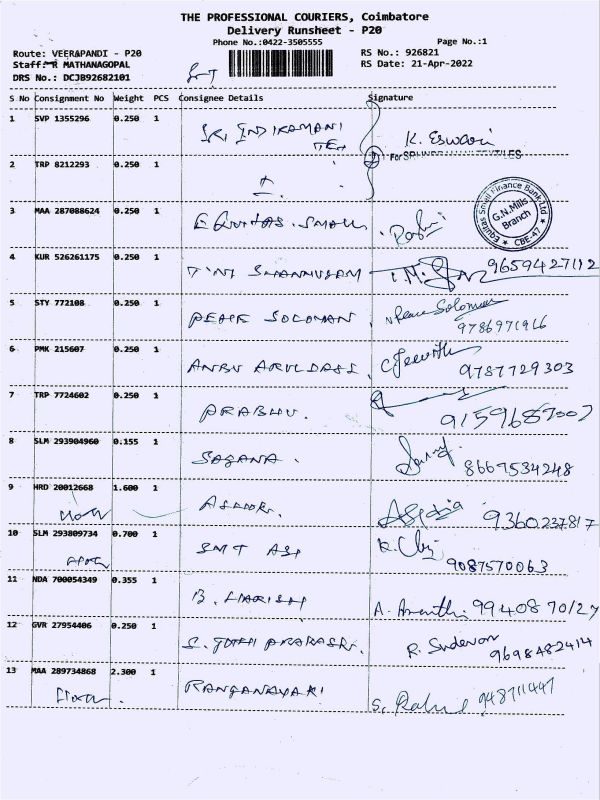 THE PROFESSIONAL COURIERS, Coimbatore
Delivery Runsheet - P20
Phone No.:0422-3505555 Page No.:1
Route: VEERAPANDI - P20 RS No.: 926821
Staff: R MATHANAGOPAL RS Date: 21-Apr-2022
DRS No.: DCJB92682101
S No Consignment No Weight PCS Consignee Details Signature
1 SVP 1355296 0.250 1 SRI INDIRAMANI TEX K. Eswari
For
2 TRP 8212293 0.250 1
3 MAA 287088624 0.250 1 EQUITAS SMALL
Equitas Small Finance Bank Ltd
G.N.Mills
Branch
CBE-47
4 KUR 526261175 0.250 1 9659427112
5 STY 772108 0.250 1 SOLOMAN Solomon
9786971916
6 PMK 215607 0.250 1 ANBU ARULDASS 9787729303
7 TRP 7724602 0.250 1 PRABHU. 9159687007
8 SLM 293904960 0.155 1 SAGANA. 8667534248
9 HRD 20012668 1.600 1 9360237817
10 SLM 293809734 0.700 1 SMT
9087570063
11 NDA 700054349 0.355 1 B. HARISH A. Ananthi 9940870127
12 GVR 27954406 0.250 1 R. Sudevan
9698482414
13 MAA 289734868 2.300 1 RANGANAYAKI S. Rahul